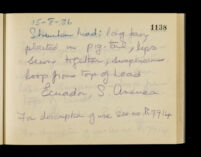 15-8-36
1138
Shrunken head: long hair
plaited in pig-tail, lips
sewn together, suspension
loop from top of head
Ecuador, S. America
For description of use see no R.7914